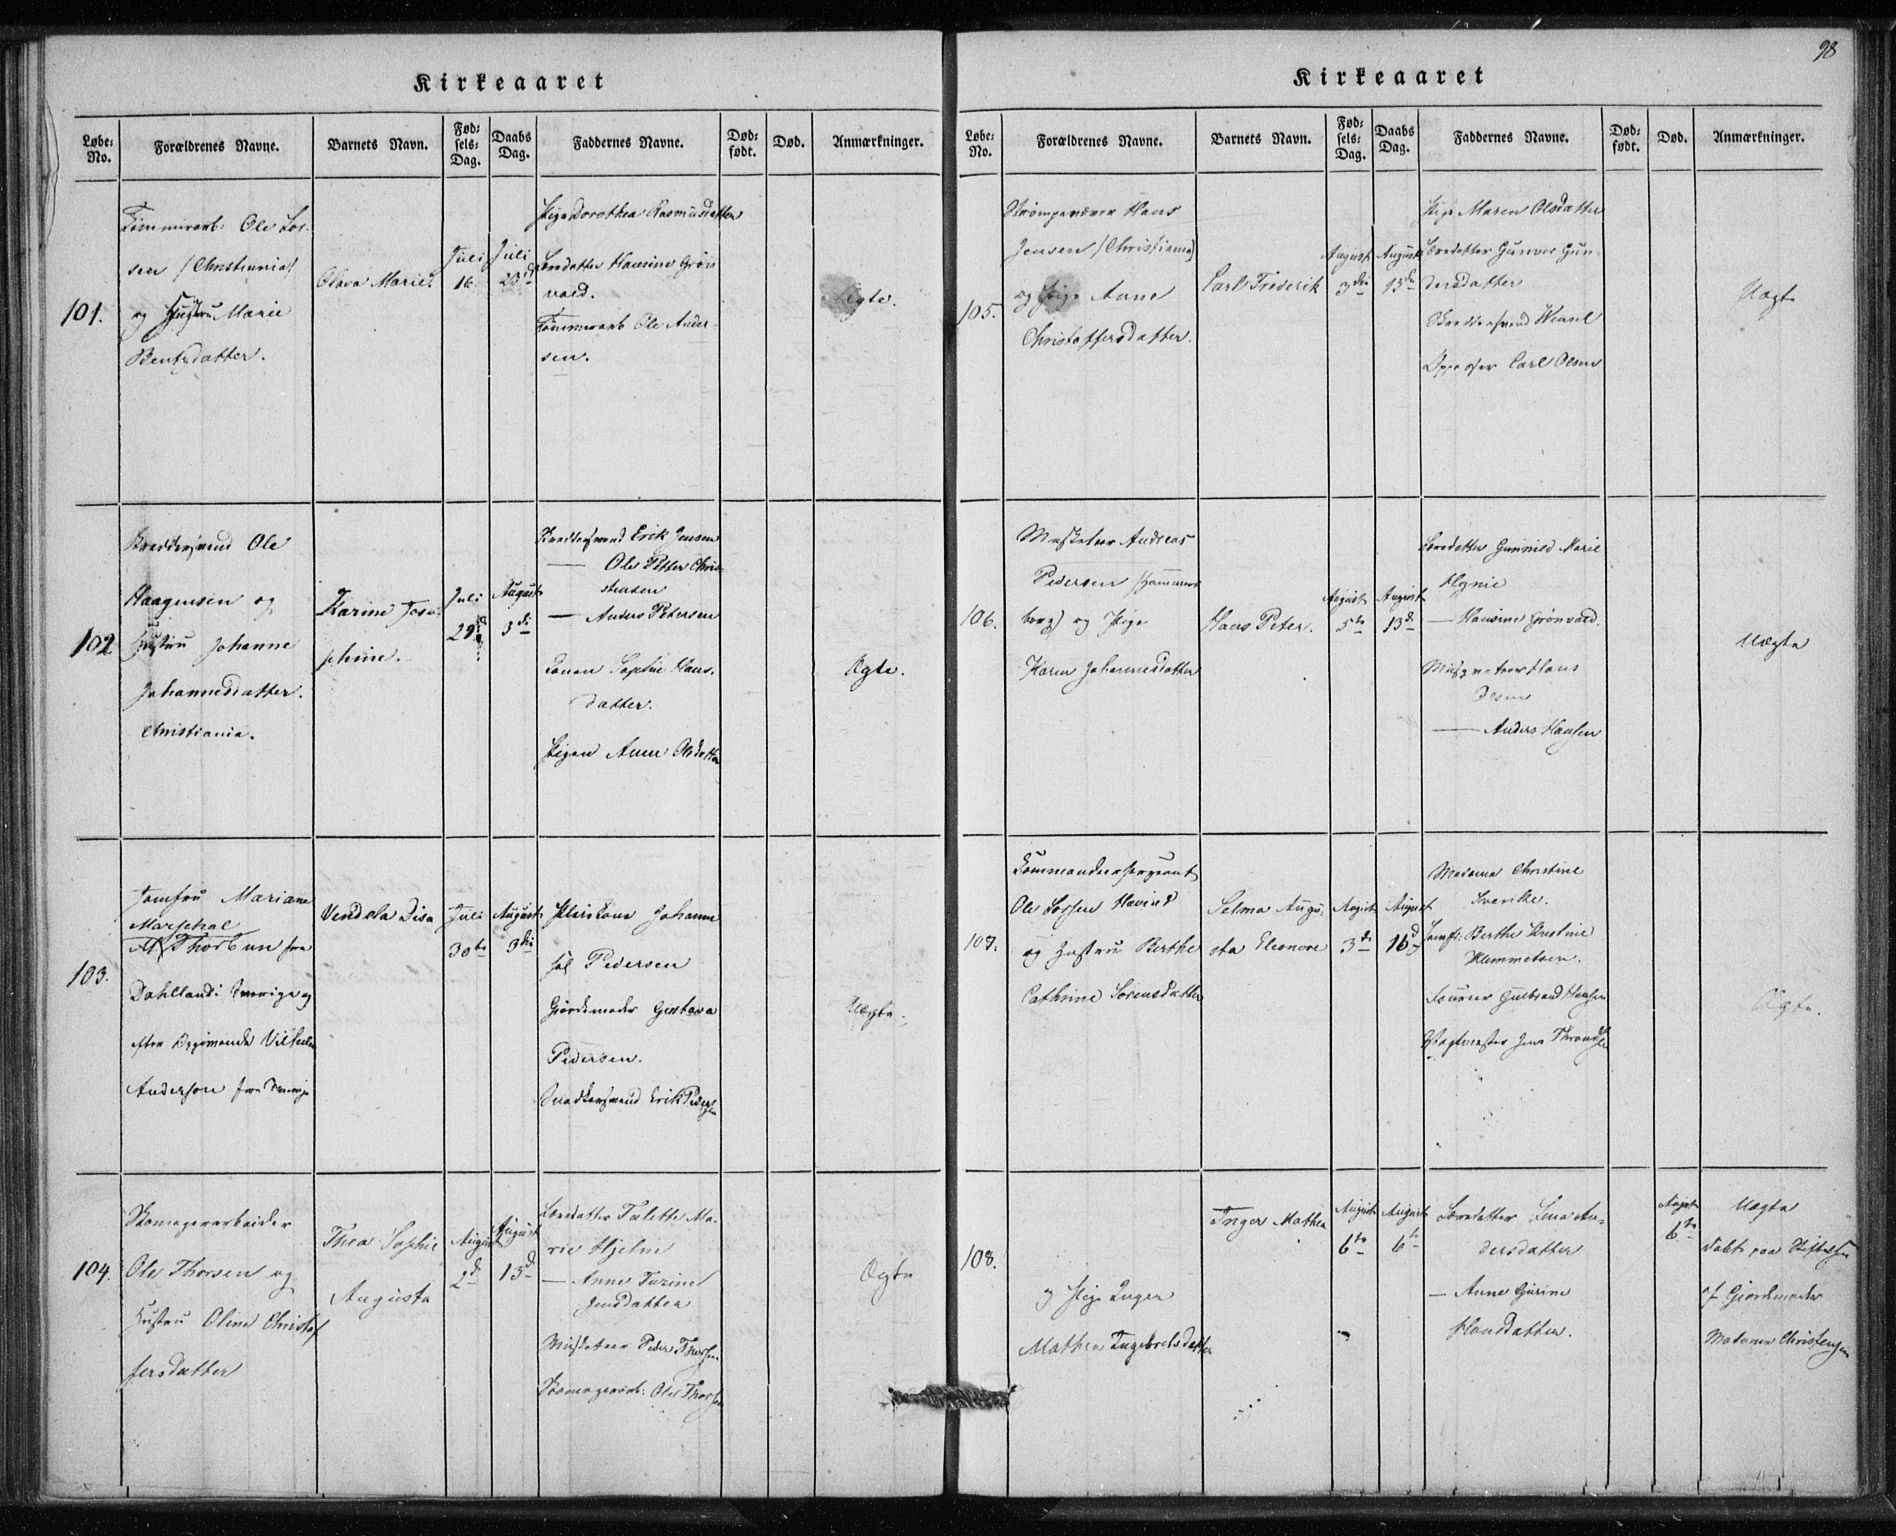 Kirkeaaret
Løbe-No.
Forældrenes Navne.
Barnets Navn.
Fødsels-Dag.
Daabs Dag.
Faddernes Navne.
Dødfødt.
Død.
Anmærkninger.
101.
Tømmerarb: Ole Lar-
sen /Christiania/
og Hustru Marie
Bentsdatter.
Olava Marie.
Juli
16.
Juli
23d
Pige Dorothea Rasmusdatter
Læredatter Hansine Grøn
vold.
Tømmerarb Ole Ander-
sen.
Ægte.
102
Skreddersvend Ole
Haagensen og
Hustru Johanne
Johannesdatter.
Christiania.
Karine Jose-
phine.
Juli
29d
August
3di
Skreddersvend Erik Jensen
— Ole Petter Chris-
tensen
— Anders Petersen
Konen Sophie Hans-
datter.
Pigen Anne Olsdatter
Ægte.
103.
Jomfru Mariane
Marschal
Thorbun fra
Dahlland i Sverige og
Vilhelm
Anderson fra Sverige
Vendela Disa
Juli
30te
August
3die
Johanne
Pedersen
Gjordemoder Gustava
Pedersen.
Snedkersvend Erik Pedersen
Uægte.
104.
Skomagerarbeider
Ole Thorsen og
Hustru Oline Christof
fersdatter
Thea Sophie
Augusta
August
2d
August
13d
Læredatter Talette Ma-
rie Hjelm
— Anne Turine
Jensdatter
Musketeer Peder Thorsen
Skomagerarb: Ole Thorsen
Ægte
98
Kirkeaaret
Løbe-No.
Forældrenes Navne.
Barnets Navn.
Fødsels-Dag.
Daabs Dag.
Faddernes Navne.
Dødfødt.
Død.
Anmærkninger.
105.
Strømpevæver Hans
Jensen /Christiania/
og Pige Anne
Christoffersdatter.
Carl Frederik
August
3die
August
13de
Pige Maren Olsdatter
Læredatter Gunvor Gun-
dersdatter
Skreddersvend
Carl Olsen
Uægte
106.
Musketeer Andreas
Pedersen
og Pige
Karen Johannesdatter
Hans Peter.
August
5te
August
13de
Læredatter Gunnild Marie
— Hansine Grønvold.
Musqueteer Hans
Olsen
— Anders Hansen
Uægte
107.
Kommandeersergeant
Ole Larsen Havind
og Hustru Berthe
Cathrine Sorensdatter
Selma Augu-
sta Eleonore
August
3de
August
16d
Madame Christine
Svenke.
Jomfr: Berthe Kirstine
Klemmetsen.
Fourer Gulbrand Hansen
Vagtmester Jens
Ægte.
108.
og Pige Inger
Mathea Ingebretsdatter
Inger Mathea
August
6te
August
6te
Læredatter Lena An-
dersdatter
— Anne Gurine
Hansdatter.
August
6te
Uægte
Døbt paa Stiftelsen
af Gjordemoder
Madame Christensen